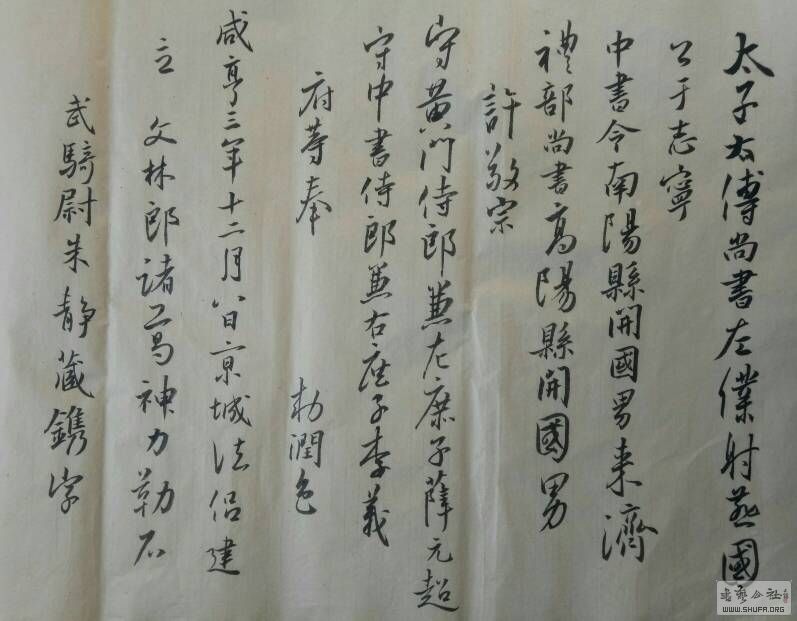 太子太傅尚書左僕射燕國
公于志寧
中書令南陽縣開國男来濟
禮部尚書高陽縣開國男
許敬宗
守黄門侍郎兼左庶子薛元超
守中書侍郎兼右庶子李義
府等奉 勅潤色
咸亨三年十二月八日京城法侣建
立 文林郎諸葛神力勒石
武騎尉朱静藏鐫字
書藝公社
WWW.SHUFA.ORG